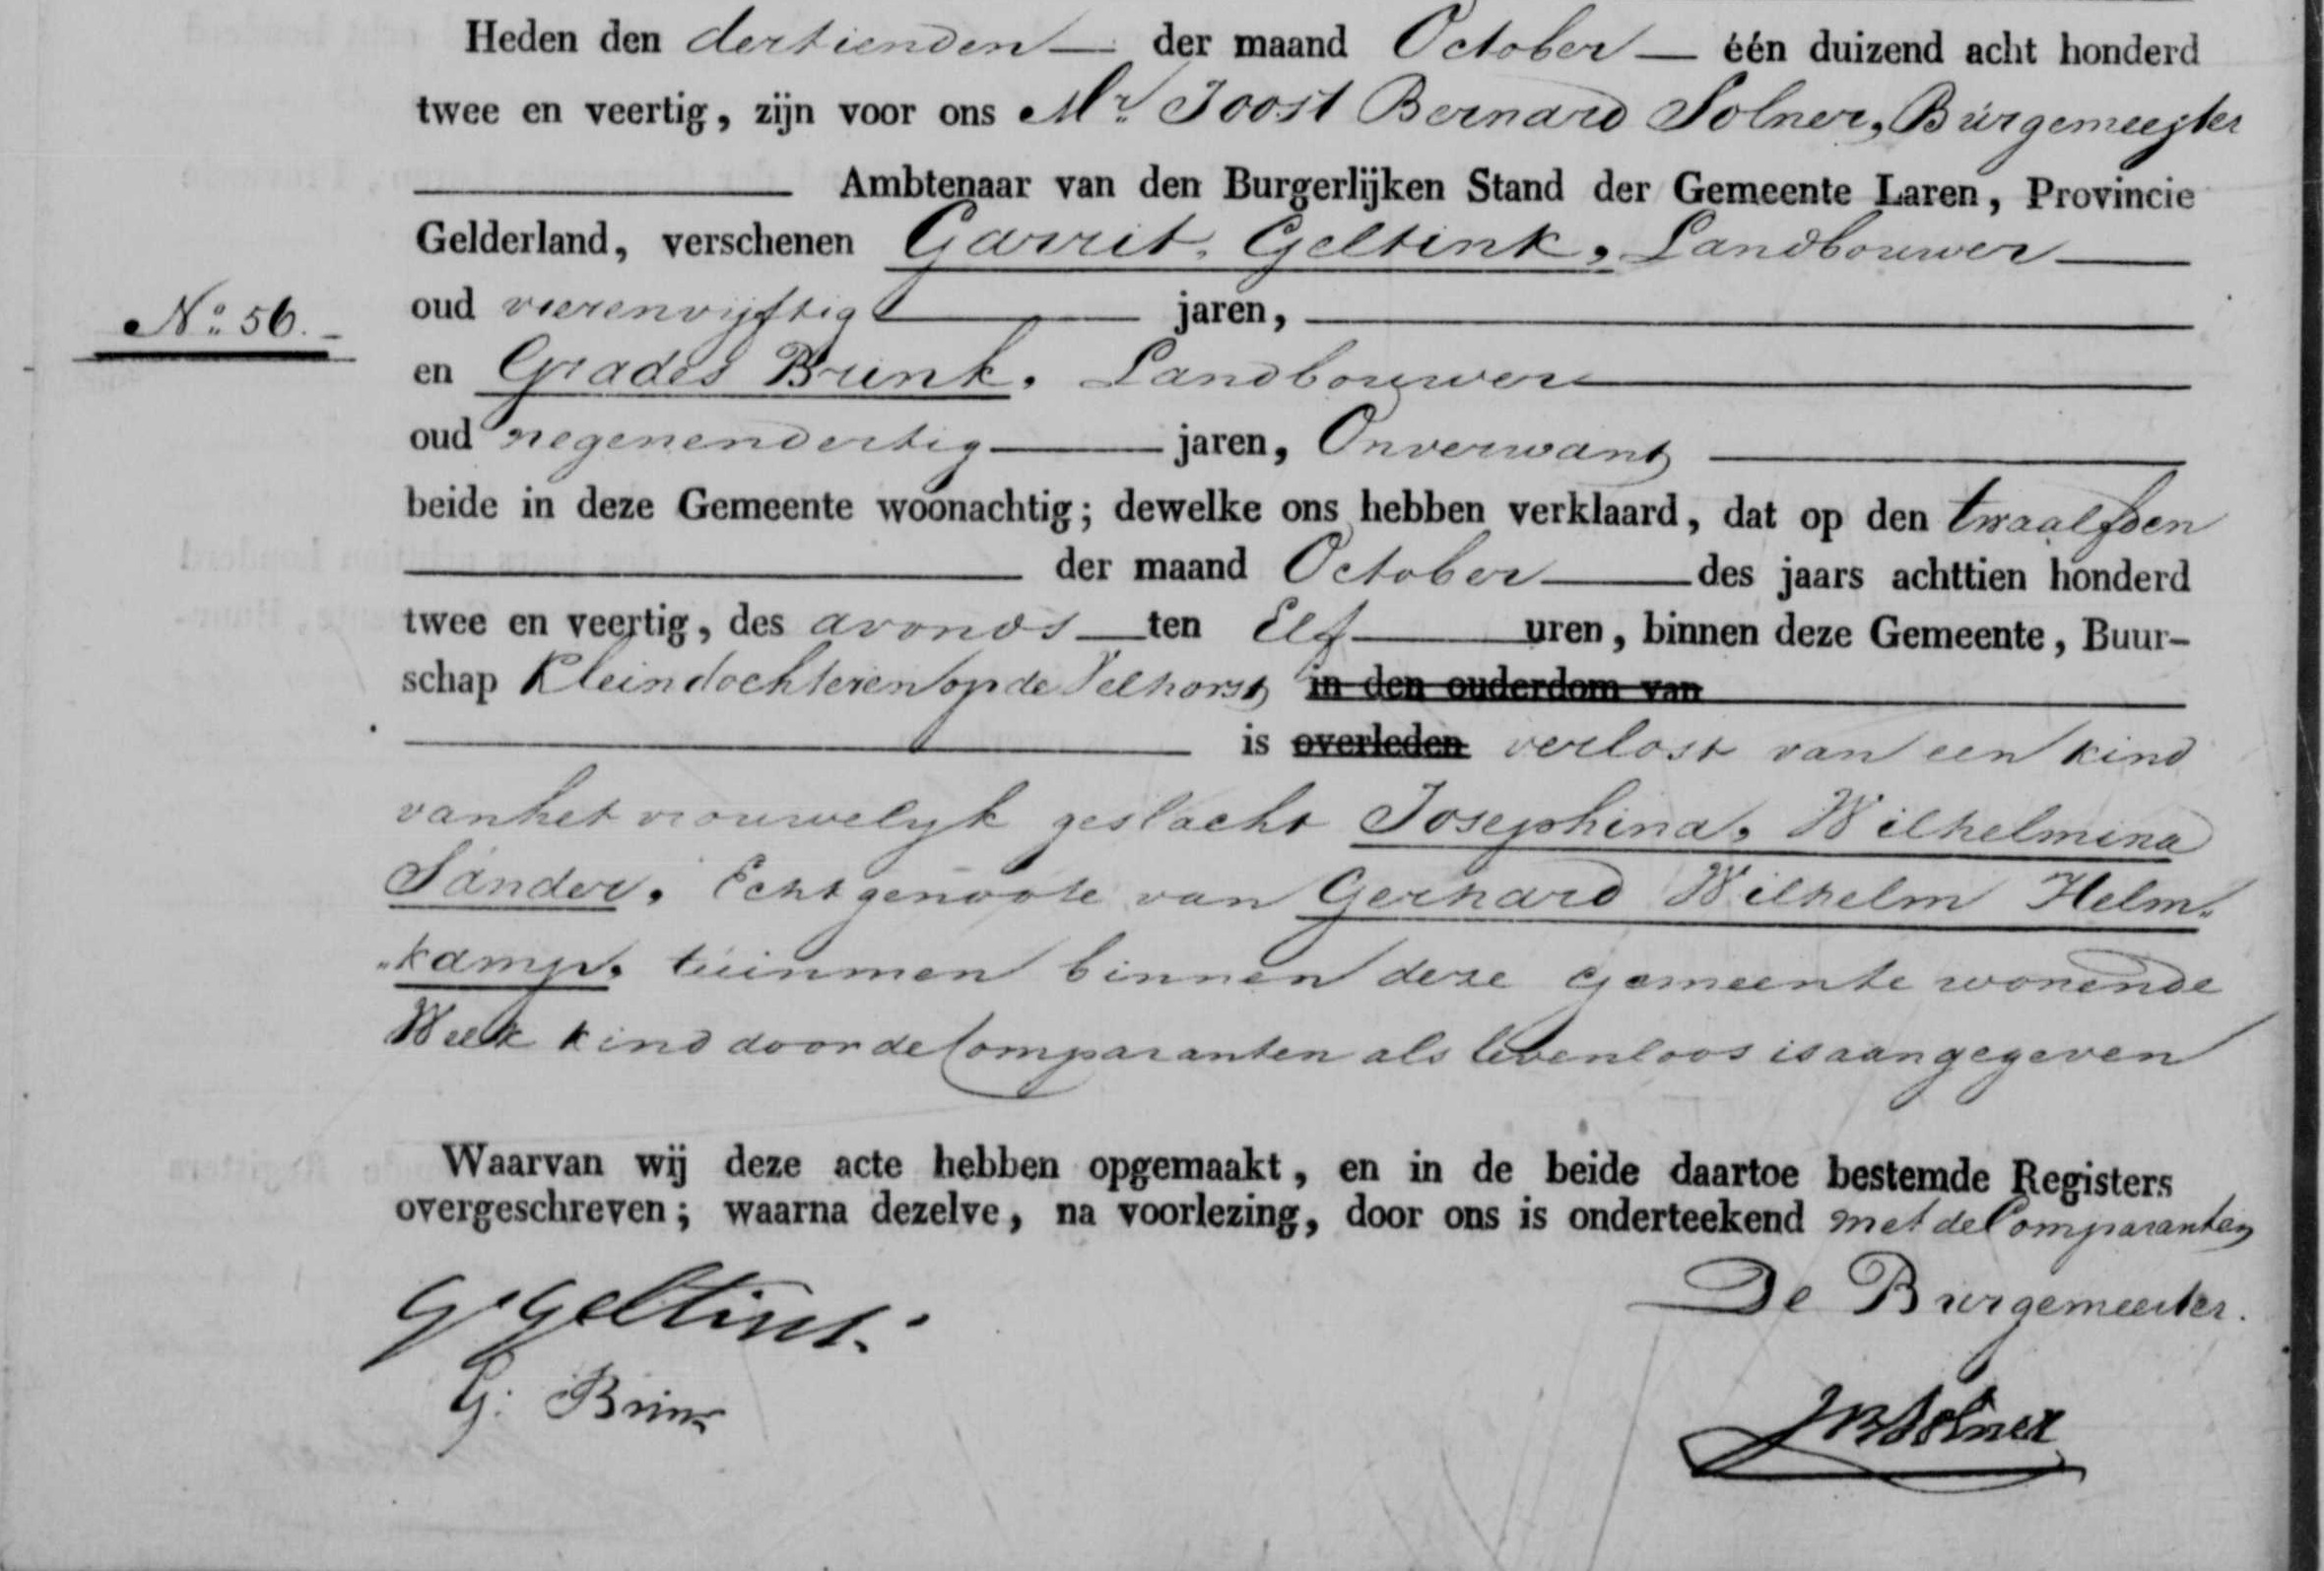 Heden den dertienden der maand October één duizend acht honderd
twee en veertig, zijn voor ons Mr Joost Bernard Solner, Burgemeester
Ambtenaar van den Burgerlijken Stand der Gemeente Laren, Provincie
Gelderland, verschenen Garrit, Geltink, Landbouwer
No: 56.
oud vierenvijftig jaren,
en Grades Brink, Landbouwer
oud negenendertig jaren, Onverwant
beide in deze Gemeente woonachtig; dewelke ons hebben verklaard, dat op den twaalfden
der maand October des jaars achttien honderd
twee en veertig, des avonds ten Elf uren, binnen deze Gemeente, Buur-
schap Kleindochteren op de Velhorst in den ouderdom van
is overleden verlost van een kind
van het vrouwelijk geslacht Josephina, Wilhelmina
Sander, Echtgenoote van Gerhard Wilhelm Helm„
„kamp, tuinman binnen deze gemeente wonende
Welk kind door de Comparanten als levenloos is aangegeven
Waarvan wij deze acte hebben opgemaakt, en in de beide daartoe bestemde Registers
overgeschreven; waarna dezelve, na voorlezing, door ons is onderteekend met de Comparanten
De Burgemeester.
G Geltink
G: Brink
JBSolner